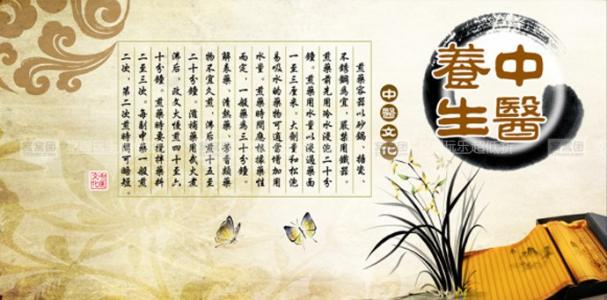 中醫
養生
中醫文化
煎藥容器以砂鍋、搪瓷、
不銹鋼為宜，嚴禁用鐵器。
煎藥前先用冷水浸泡二十分
鐘。煎藥用水量以浸過藥面
一至三厘米。大劑量和松泡
易吸水的藥物可適當增加用
水量。煎藥時間應根據藥性
而定，一般藥為三十分鐘。
解表藥、清熱藥、芳香類藥
物不宜久煎，沸后煎十五至
二十分鐘。滋補藥用武火煮
沸后，改文火慢煎四十至六
十分鐘。煎藥時要攪拌藥料
二至三次。每劑中藥一般煎
二次，第二次煎時間可略短。